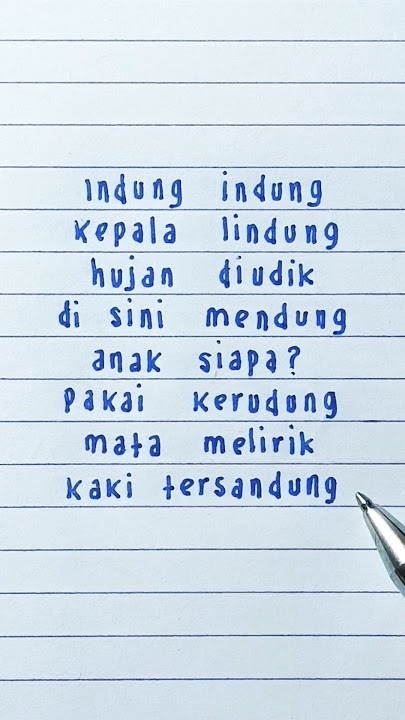 Indung indung
kepala lindung
hujan diudik
di sini mendung
anak siapa?
pakai kerudung
mata melirik
kaki tersandung